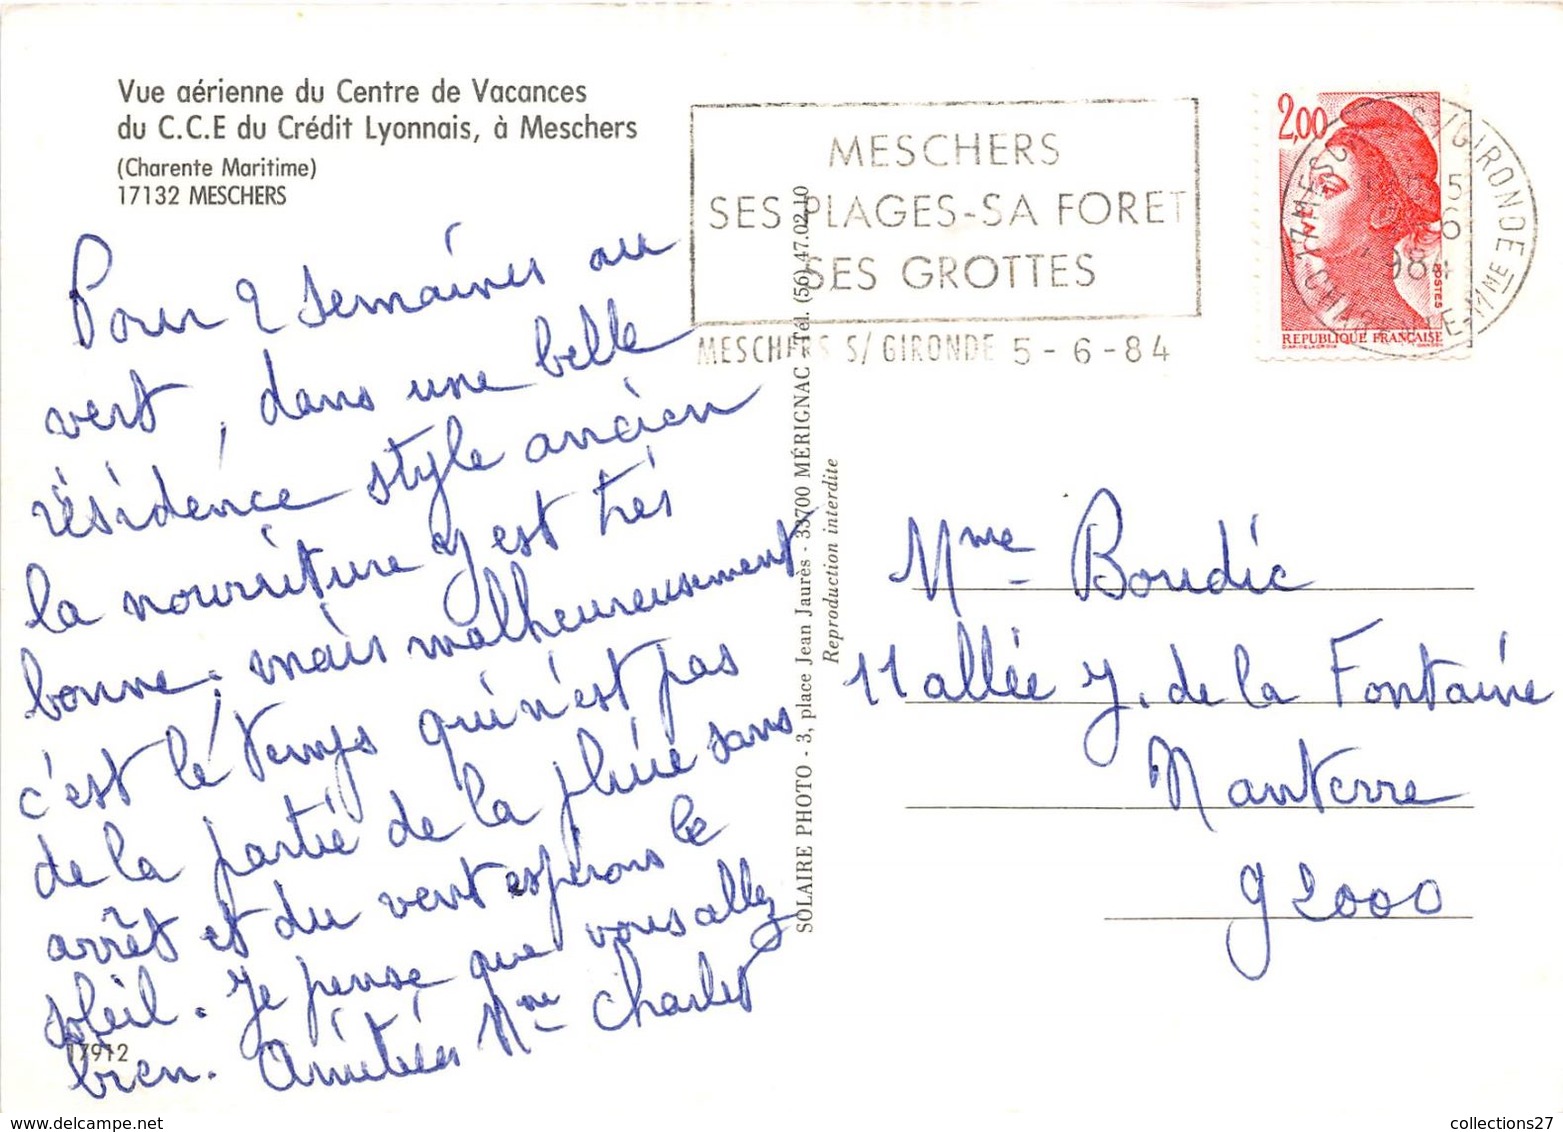 Vue aérienne du Centre de Vacances
du C.C.E du Crédit Lyonnais, à Meschers
(Charente Maritime)
17132 MESCHERS
Pour 2 semaines au
vert, dans une belle
résidence style ancien
la nourriture y est très
bonne, mais malheureusement
c'est le temps qui n'est pas
de la partie de la pluie sans
arrêt et du vent espérons le
soleil. Je pense que vous allez
bien. Amitiés Mme Charlet
17912
MESCHERS
SES PLAGES-SA FORET
SES GROTTES
MESCHERS S/GIRONDE 5-6-84
2,00
POSTES
REPUBLIQUE FRANÇAISE
S/GIRONDE
1984
SOLAIRE PHOTO - 3, place Jean Jaurès - 33700 MÉRIGNAC - Tél. (56) 47.02.10
Reproduction interdite
Mme Boudic
11 allée J. de la Fontaine
Nanterre
92000
collections27